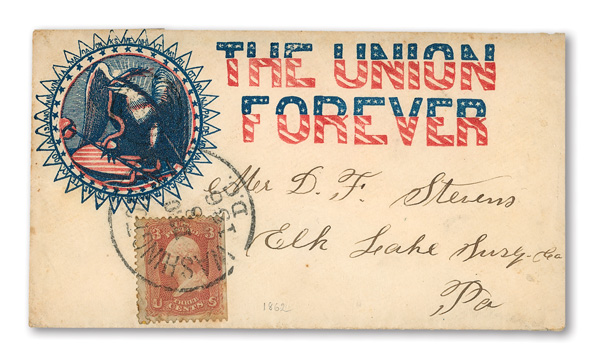 THE UNION
FOREVER
Mr D. F. Stevens
Elk Lake Susq. Co
Pa
WASHINGTON D
3 3
THREE
U CENTS S
1862